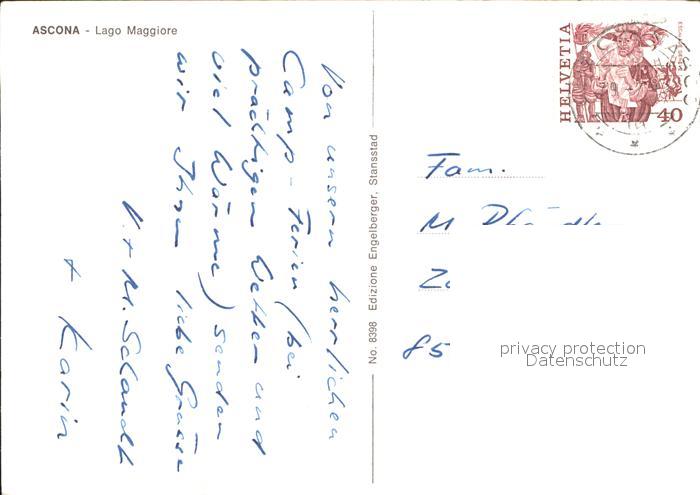 ASCONA - Lago Maggiore
Von unsern herrlichen
Camp-Ferien (bei
prächtigem Wetter und
viel Wärme) senden
wir Ihnen liebe Grüsse
+ Karin
No. 8398 Edizione Engelberger, Stansstad
HELVETIA
40
Fam.
M
85
privacy protection
Datenschutz